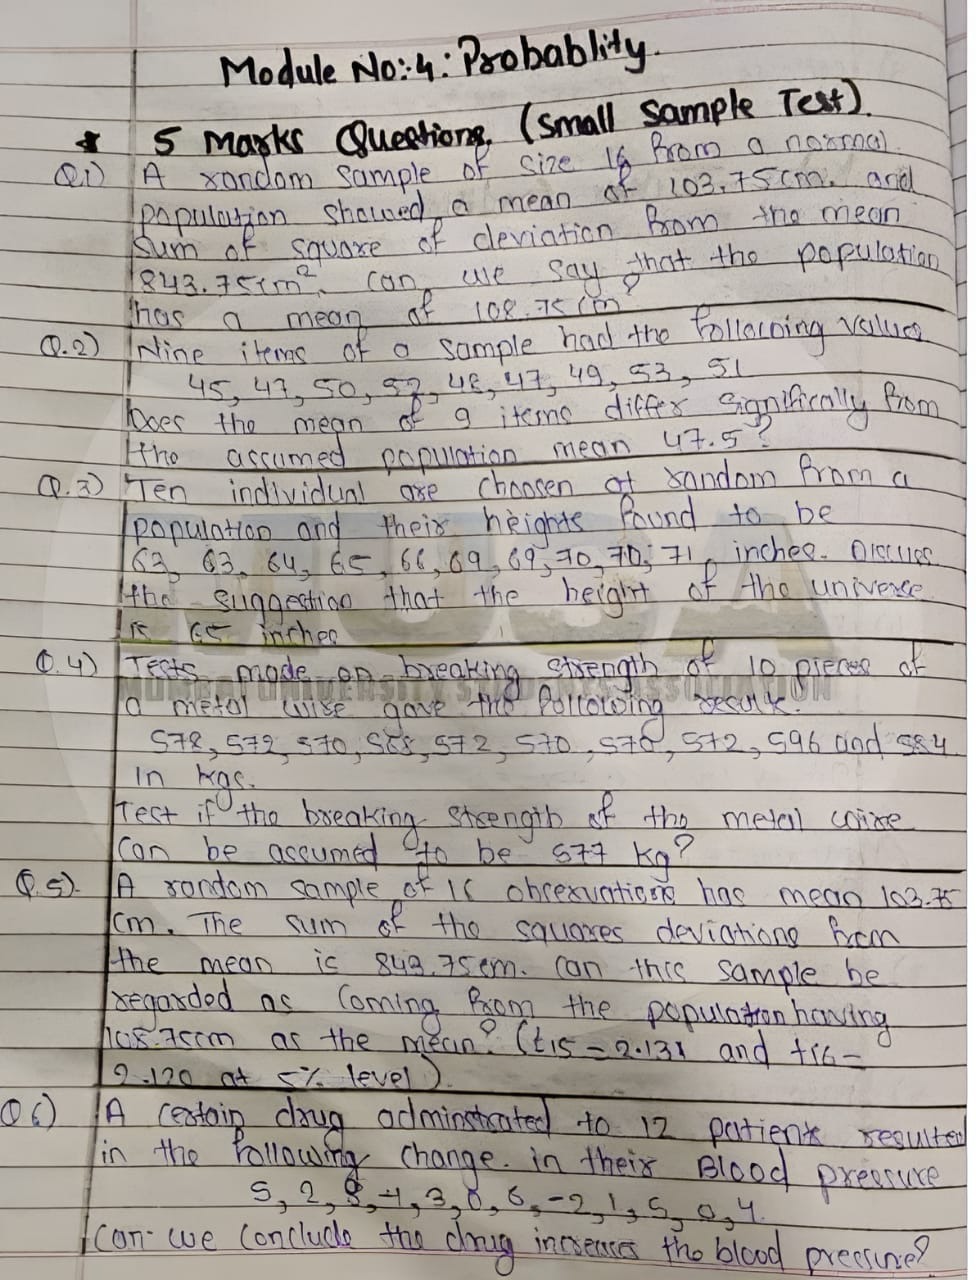 Module No:4: Probablity.
* 5 Marks Questions. (Small Sample Test).
Q.1) A random sample of size 16 from a normal
population showed a mean of 103.75cm. and
sum of square of deviation from the mean
843.75cm². Can we say that the population
has a mean of 108.75 cm?
Q.2) Nine items of a sample had the following values
45, 47, 50, 52, 48, 47, 49, 53, 51
Does the mean of 9 items differ significally from
the assumed population mean 47.5?
Q.3) Ten individual are choosen at random from a
population and their heights found to be
63, 63, 64, 65, 66, 69, 69, 70, 70, 71 inches. Discuss
the suggestion that the height of the universe
is 65 inches
Q.4) Tests made on breaking strength of 10 pieces of
MUSA
MUMBAI UNIVERSITY STUDENTS ASSOCIATION
a metal wire gave the following result.
578, 572, 570, 568, 572, 570, 570, 572, 596 and 584
in kgs.
Test if the breaking strength of the metal wire
can be assumed to be 577 kg?
Q.5). A random sample of 16 observations has mean 103.75
cm. The sum of the squares deviations from
the mean is 843.75cm. Can this sample be
regarded as coming from the population having
108.75cm as the mean? (t15 = 2.131 and t16 =
2.120 at 5% level).
Q6) A certain drug adminstrated to 12 patients resulted
in the following change in their Blood pressure
5, 2, 8, -1, 3, 0, 6, -2, 1, 5, 0, 4.
Can we conclude the drug increases the blood pressure?